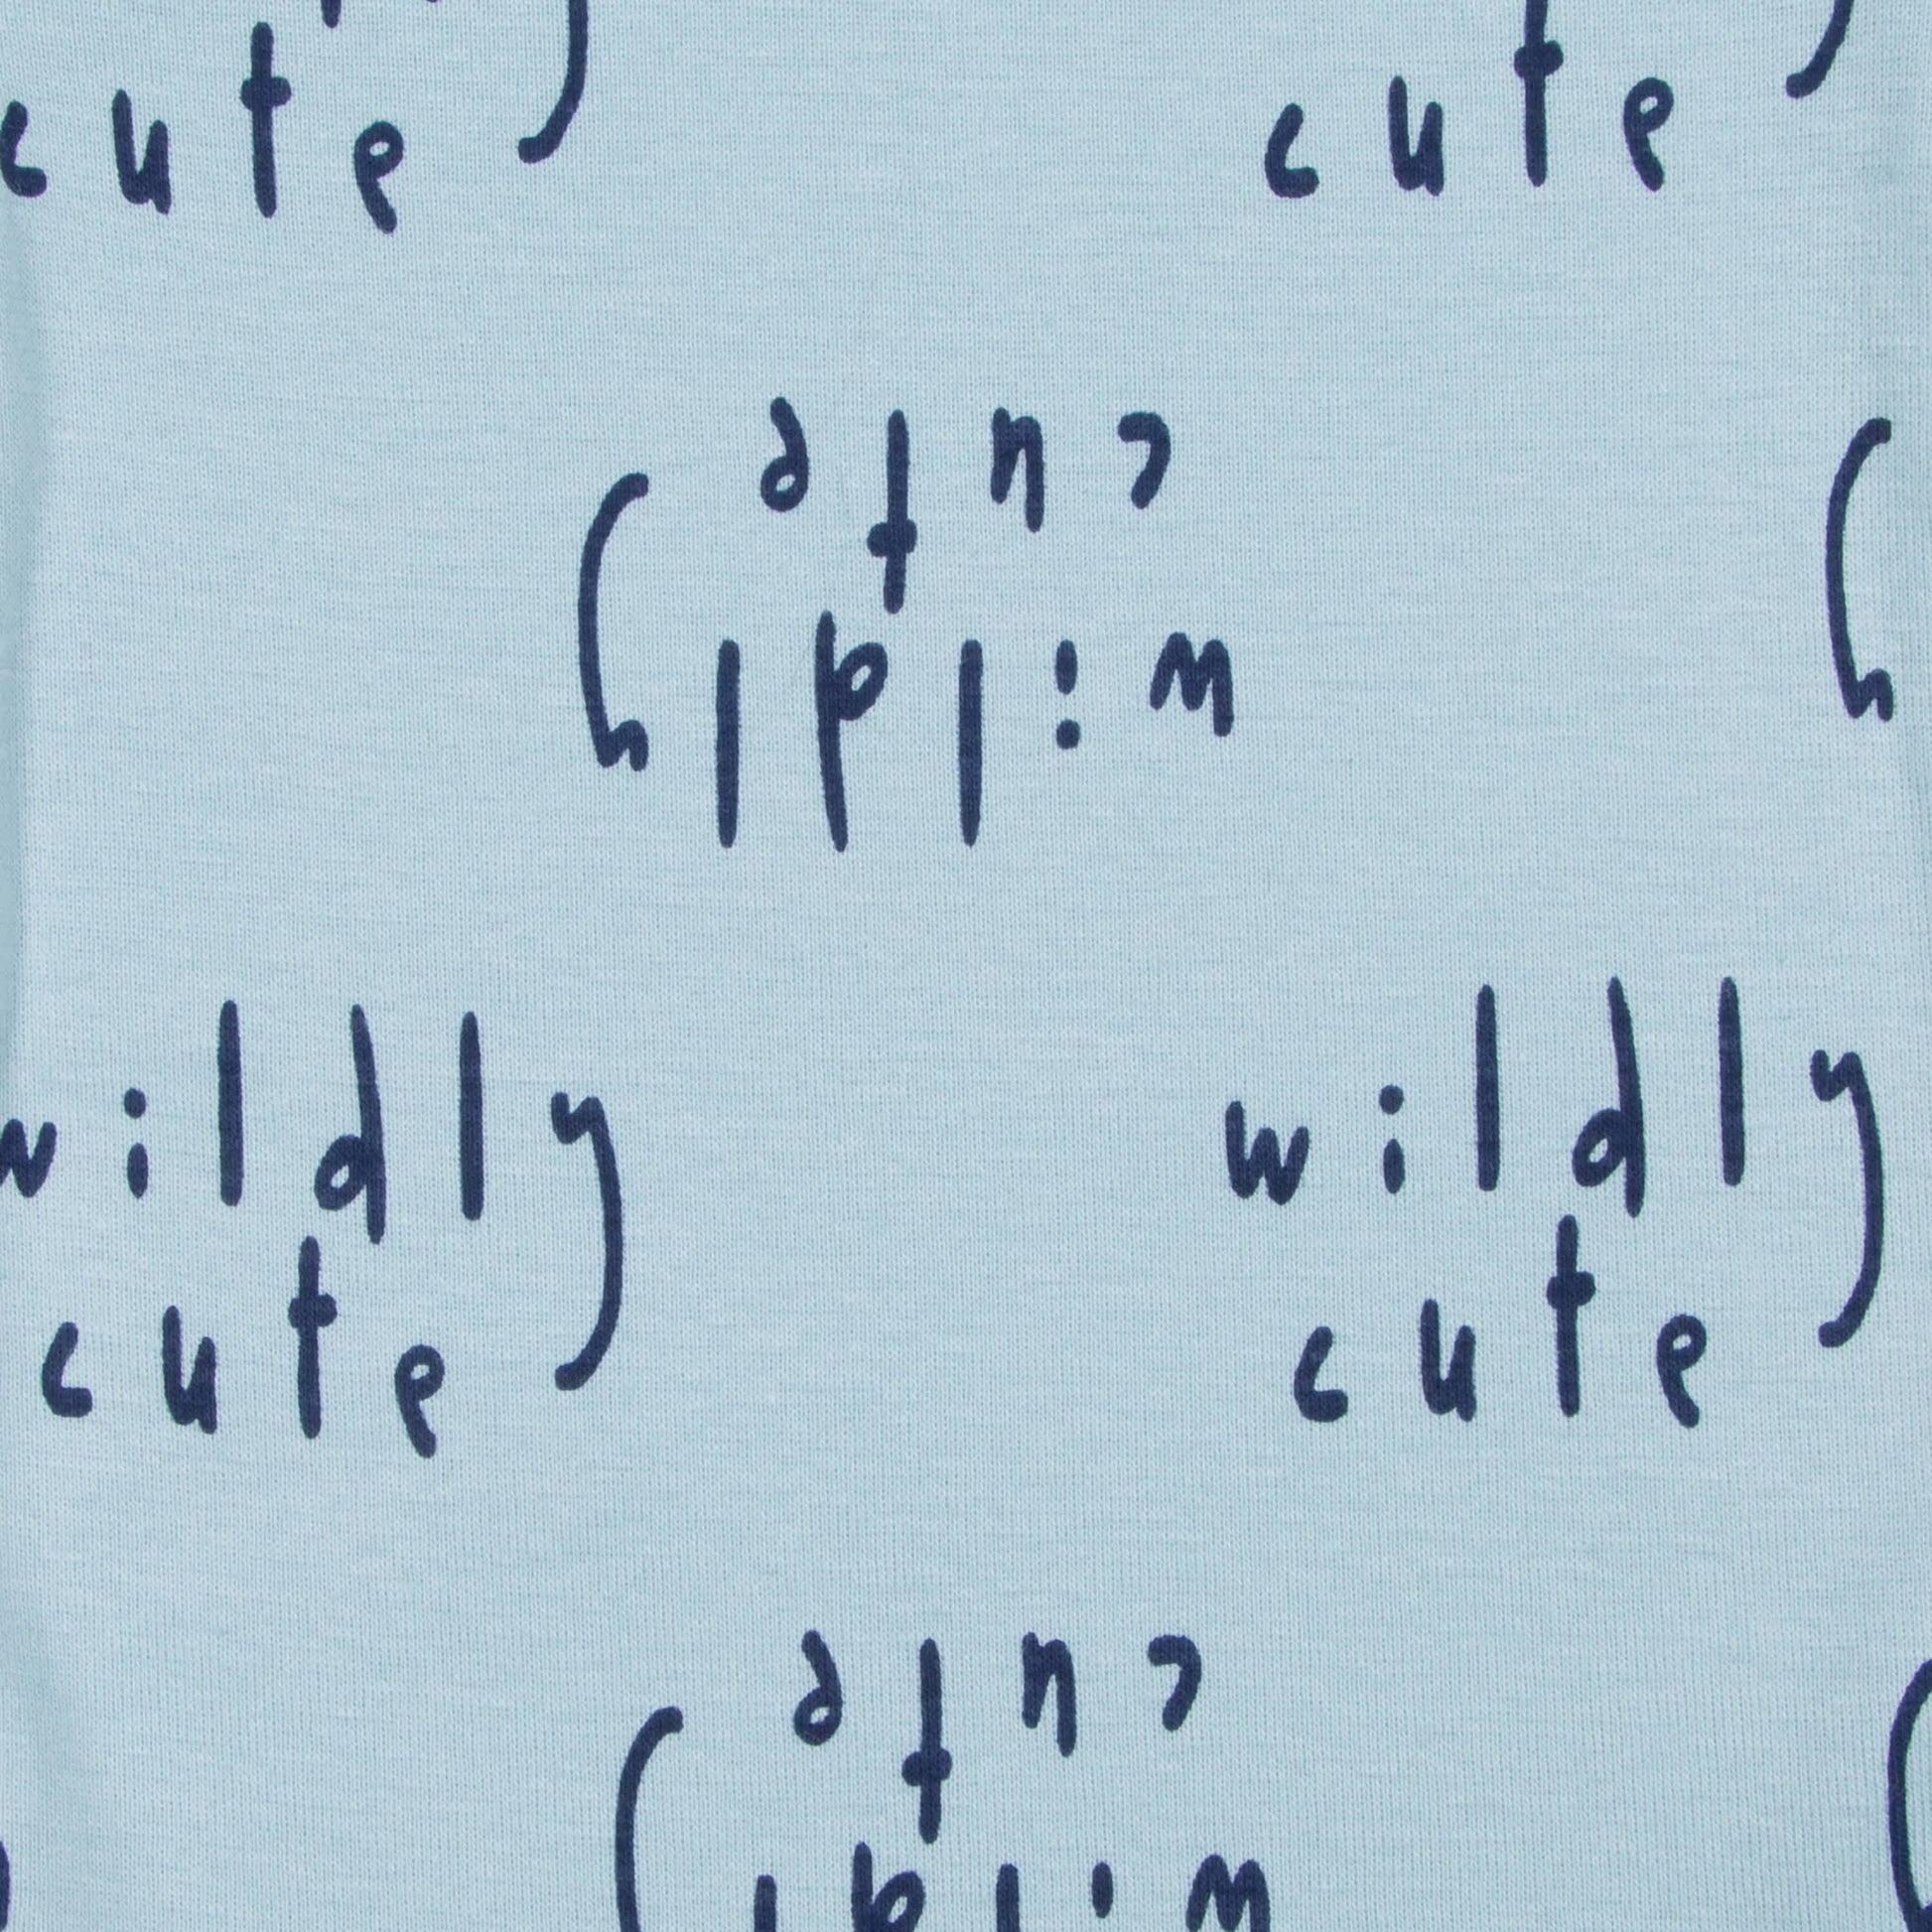 cute
cute
wildly
cute
wildly
cute
wildly
cute
wildly
cute